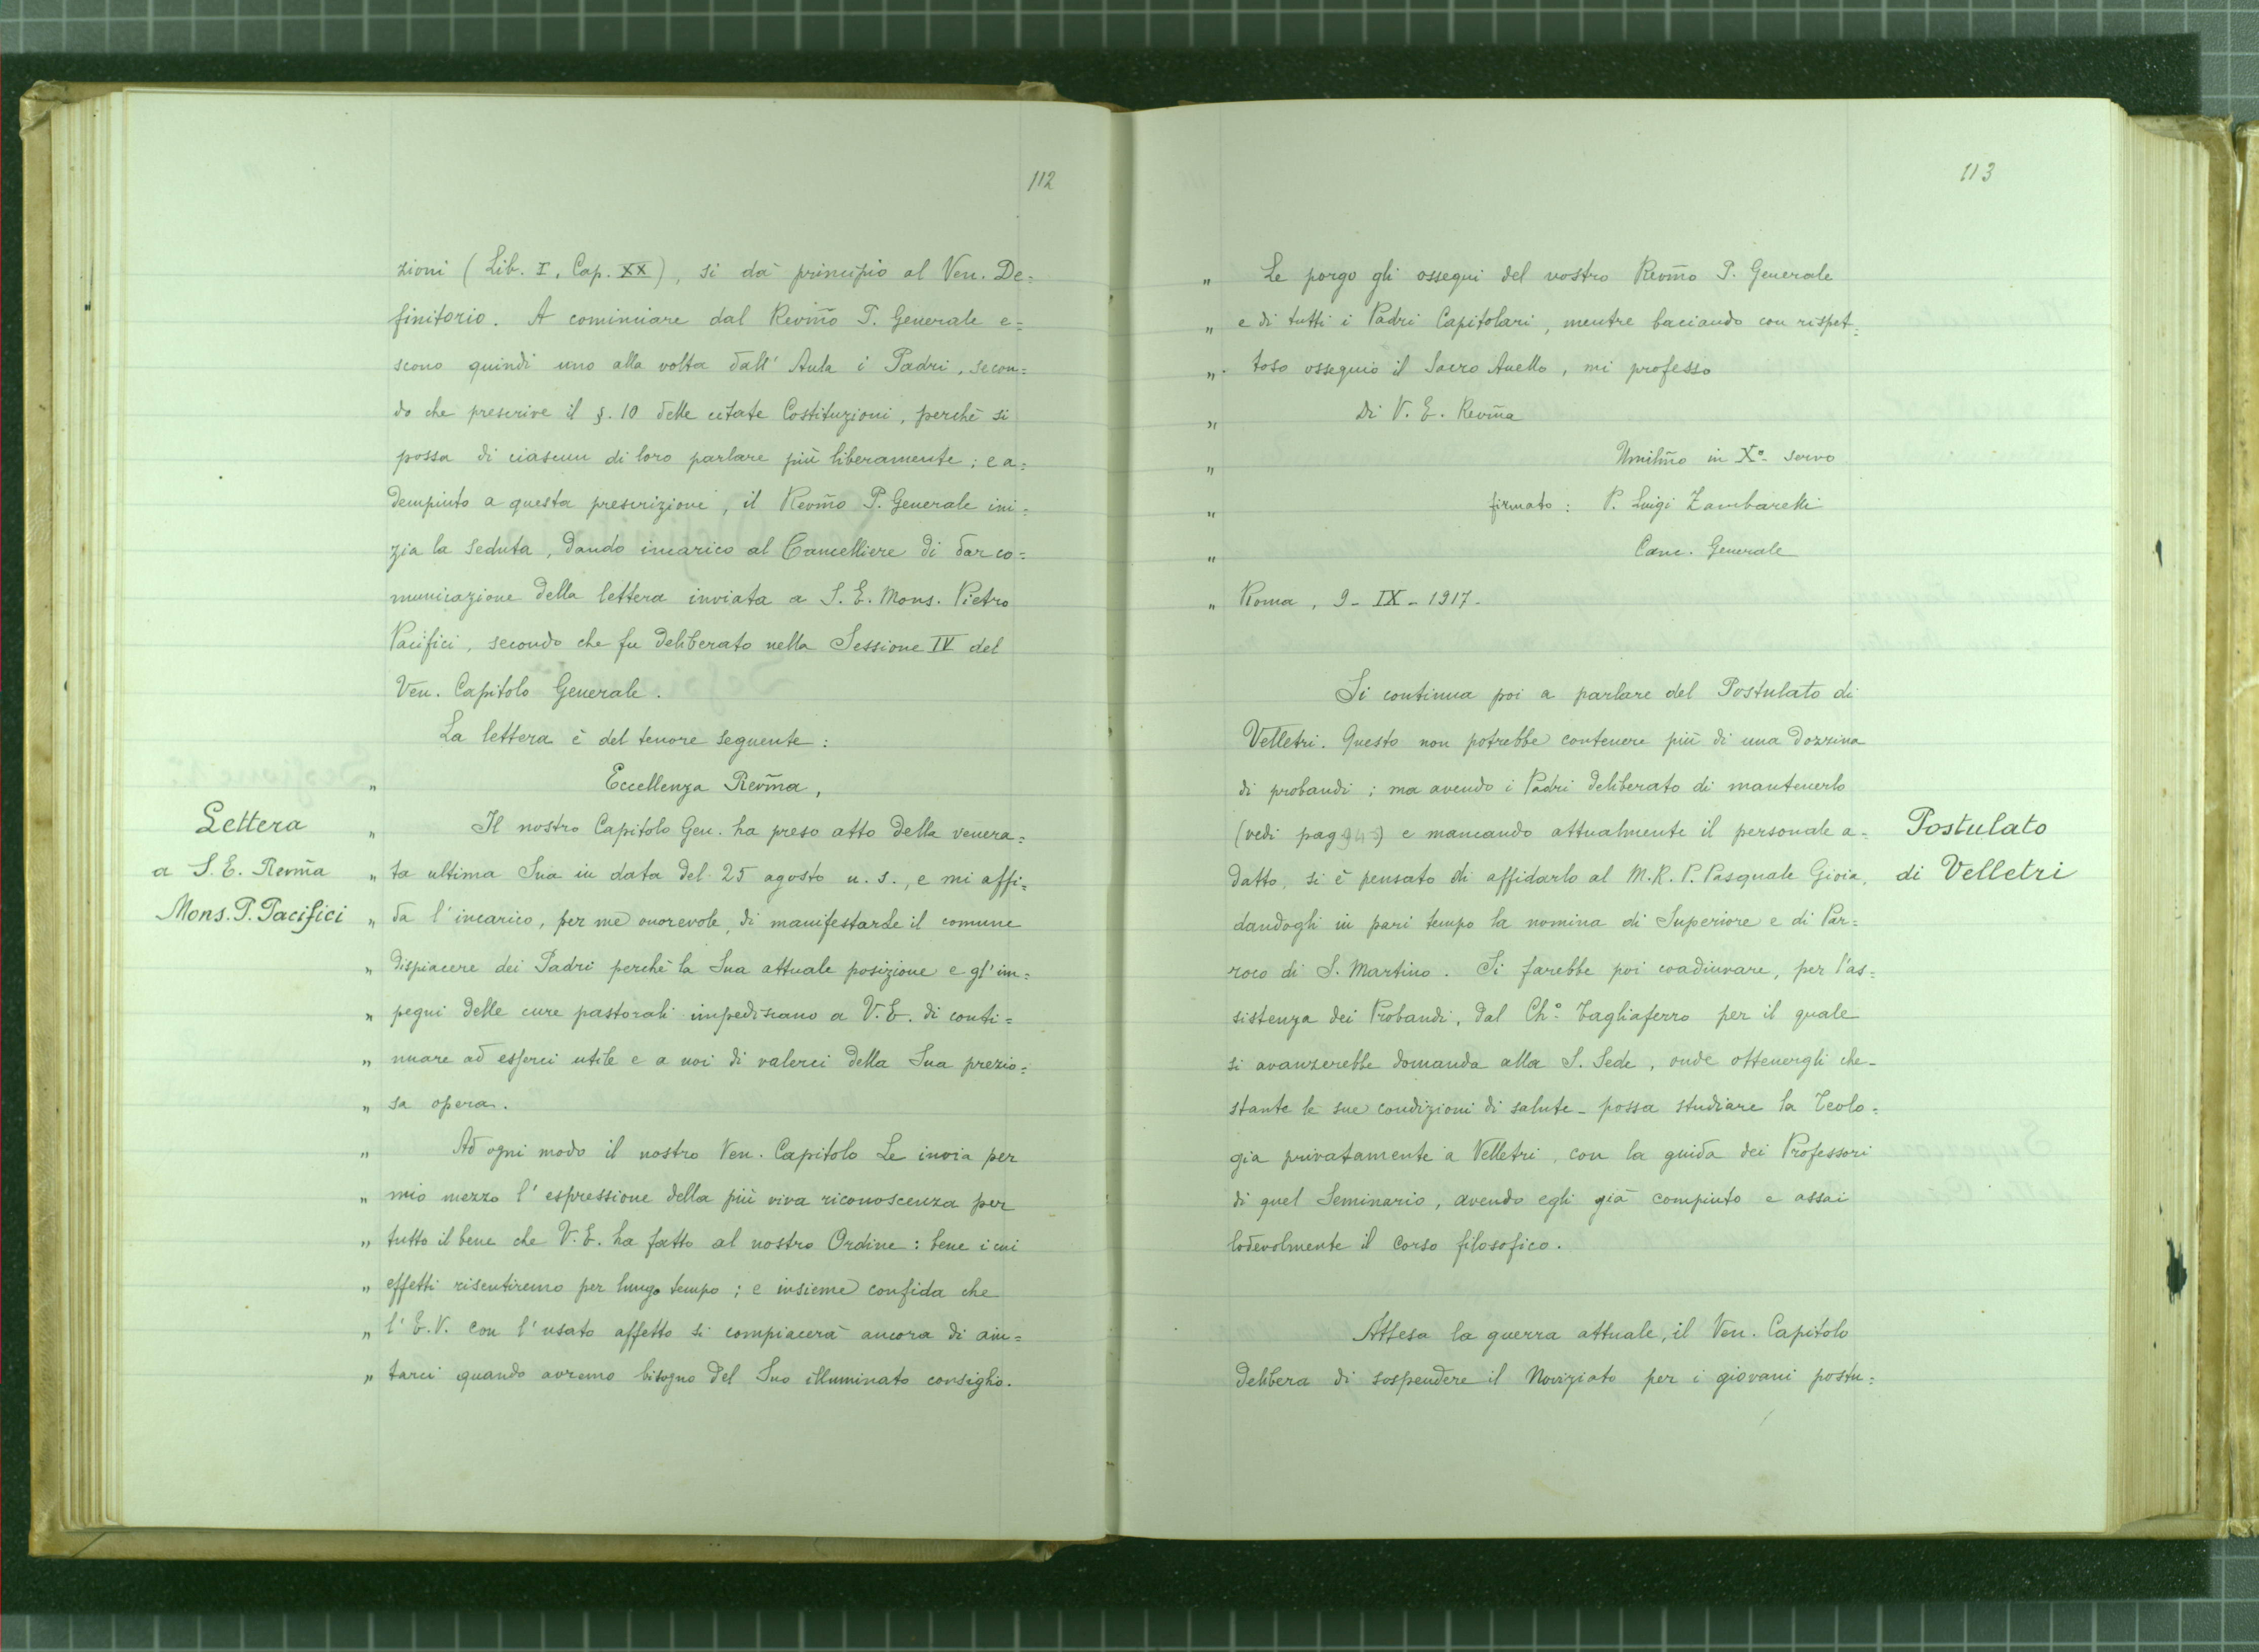 112
zioni (Lib. I, Cap. XX), si dà principio al Ven. De=
finitorio. A cominciare dal Revm̃o P. Generale e=
scono quindi uno alla volta dall' Aula i Padri, secon=
do che prescrive il §. 10 delle citate Costituzioni, perchè si
possa di ciascun di loro parlare più liberamente; e a=
dempiuto a questa prescrizione, il Revm̃o P. Generale ini=
zia la seduta, dando incarico al Cancelliere di dar co=
municazione della lettera inviata a S. E. Mons. Pietro
Pacifici, secondo che fu deliberato nella Sessione IV del
Ven. Capitolo Generale.
La lettera è del tenore seguente:
" Eccellenza Revm̃a,
Lettera
a S. E. Revm̃a
Mons. P. Pacifici
" Il nostro Capitolo Gen. ha preso atto della venera=
" ta ultima Sua in data del 25 agosto u. s., e mi affi=
" da l'incarico, per me onorevole, di manifestarLe il comune
" dispiacere dei Padri perchè la Sua attuale posizione e gl'im=
" pegni delle cure pastorali impediscano a V. E. di conti=
" nuare ad esserci utile e a noi di valerci della Sua prezio=
" sa opera.
" Ad ogni modo il nostro Ven. Capitolo Le invia per
" mio mezzo l'espressione della più viva riconoscenza per
" tutto il bene che V. E. ha fatto al nostro Ordine: bene i cui
" effetti risentiremo per lungo tempo; e insieme confida che
" l'E. V. con l'usato affetto si compiacerà ancora di aiu=
" tarci quando avremo bisogno del Suo illuminato consiglio.
113
" Le porgo gli ossequi del nostro Revm̃o P. Generale
" e di tutti i Padri Capitolari, mentre baciando con rispet=
" toso ossequio il Sacro Anello, mi professo
" Di V. E. Revm̃a
" Umilm̃o in Xº servo
" firmato: P. Luigi Zambarelli
" Canc. Generale
" Roma, 9 - IX - 1917 -
Si continua poi a parlare del Postulato di
Velletri. Questo non potrebbe contenere più di una dozzina
di probandi; ma avendo i Padri deliberato di mantenerlo
(vedi pag ) e mancando attualmente il personale a=
datto, si è pensato di affidarlo al M. R. P. Pasquale Gioia,
dandogli in pari tempo la nomina di Superiore e di Par=
roco di S. Martino. Si farebbe poi coadiuvare, per l'as=
sistenza dei Probandi, dal Ch.º Tagliaferro per il quale
si avanzerebbe domanda alla S. Sede, onde ottenergli che -
stante le sue condizioni di salute - possa studiare la Teolo=
gia privatamente a Velletri, con la guida dei Professori
di quel Seminario, avendo egli già compiuto e assai
lodevolmente il corso filosofico.
Postulato
di Velletri
Attesa la guerra attuale, il Ven. Capitolo
delibera di sospendere il Noviziato per i giovani postu=